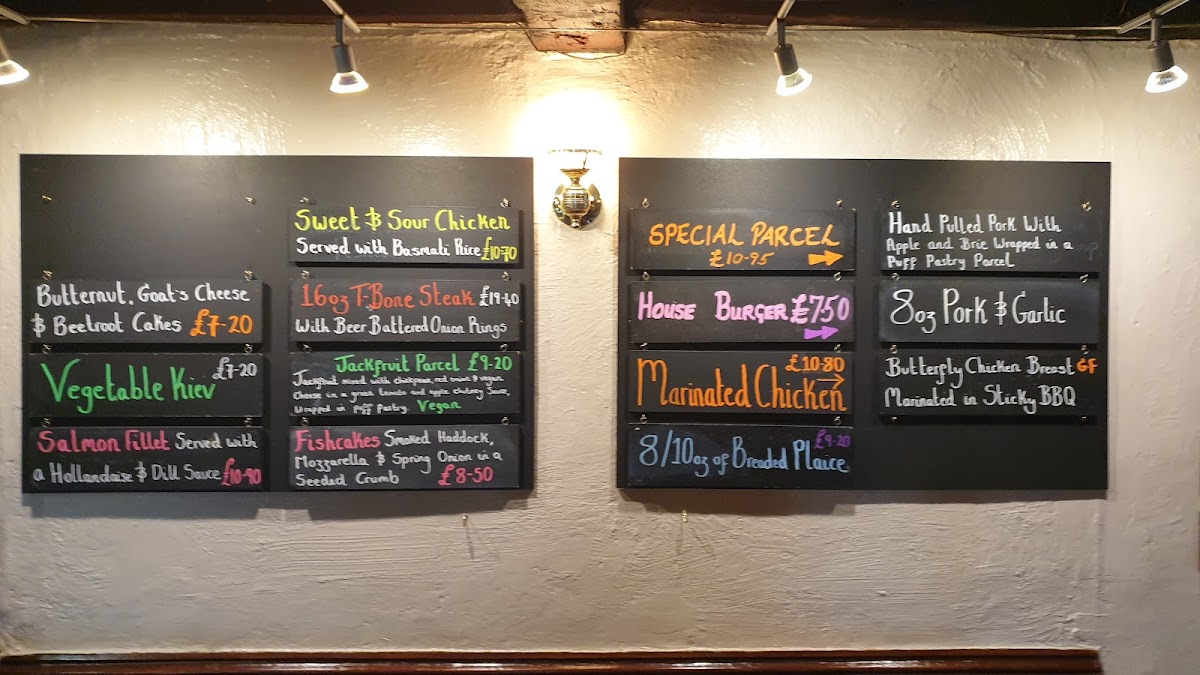 Butternut. Goat's Cheese
& Beetroot Cakes £7-20
£7-20
Vegetable Kiev
Salmon Fillet Served with
a Hollandaise & Dill Sauce £10-90
Sweet & Sour Chicken
Served with Basmati Rice £10-70
16oz T-Bone Steak £19-40
With Beer Battered Onion Rings
Jackfruit Parcel £9-20
Jackfruit mixed with chickpeas, red onion & vegan
Cheese in a green tomato and apple chutney Sauce,
Wrapped in Puff Pastry. Vegan
Fishcakes Smoked Haddock,
Mozzarella & Spring Onion in a
Seeded Crumb £8-50
SPECIAL PARCEL
£10-95
House Burger £7.50
£10-80
Marinated Chicken
£9-20
8/10oz of Breaded Plaice
Hand Pulled Pork With
Apple and Brie Wrapped in a
Puff Pastry Parcel
8oz Pork & Garlic
Butterfly Chicken Breast GF
Marinated in Sticky BBQ